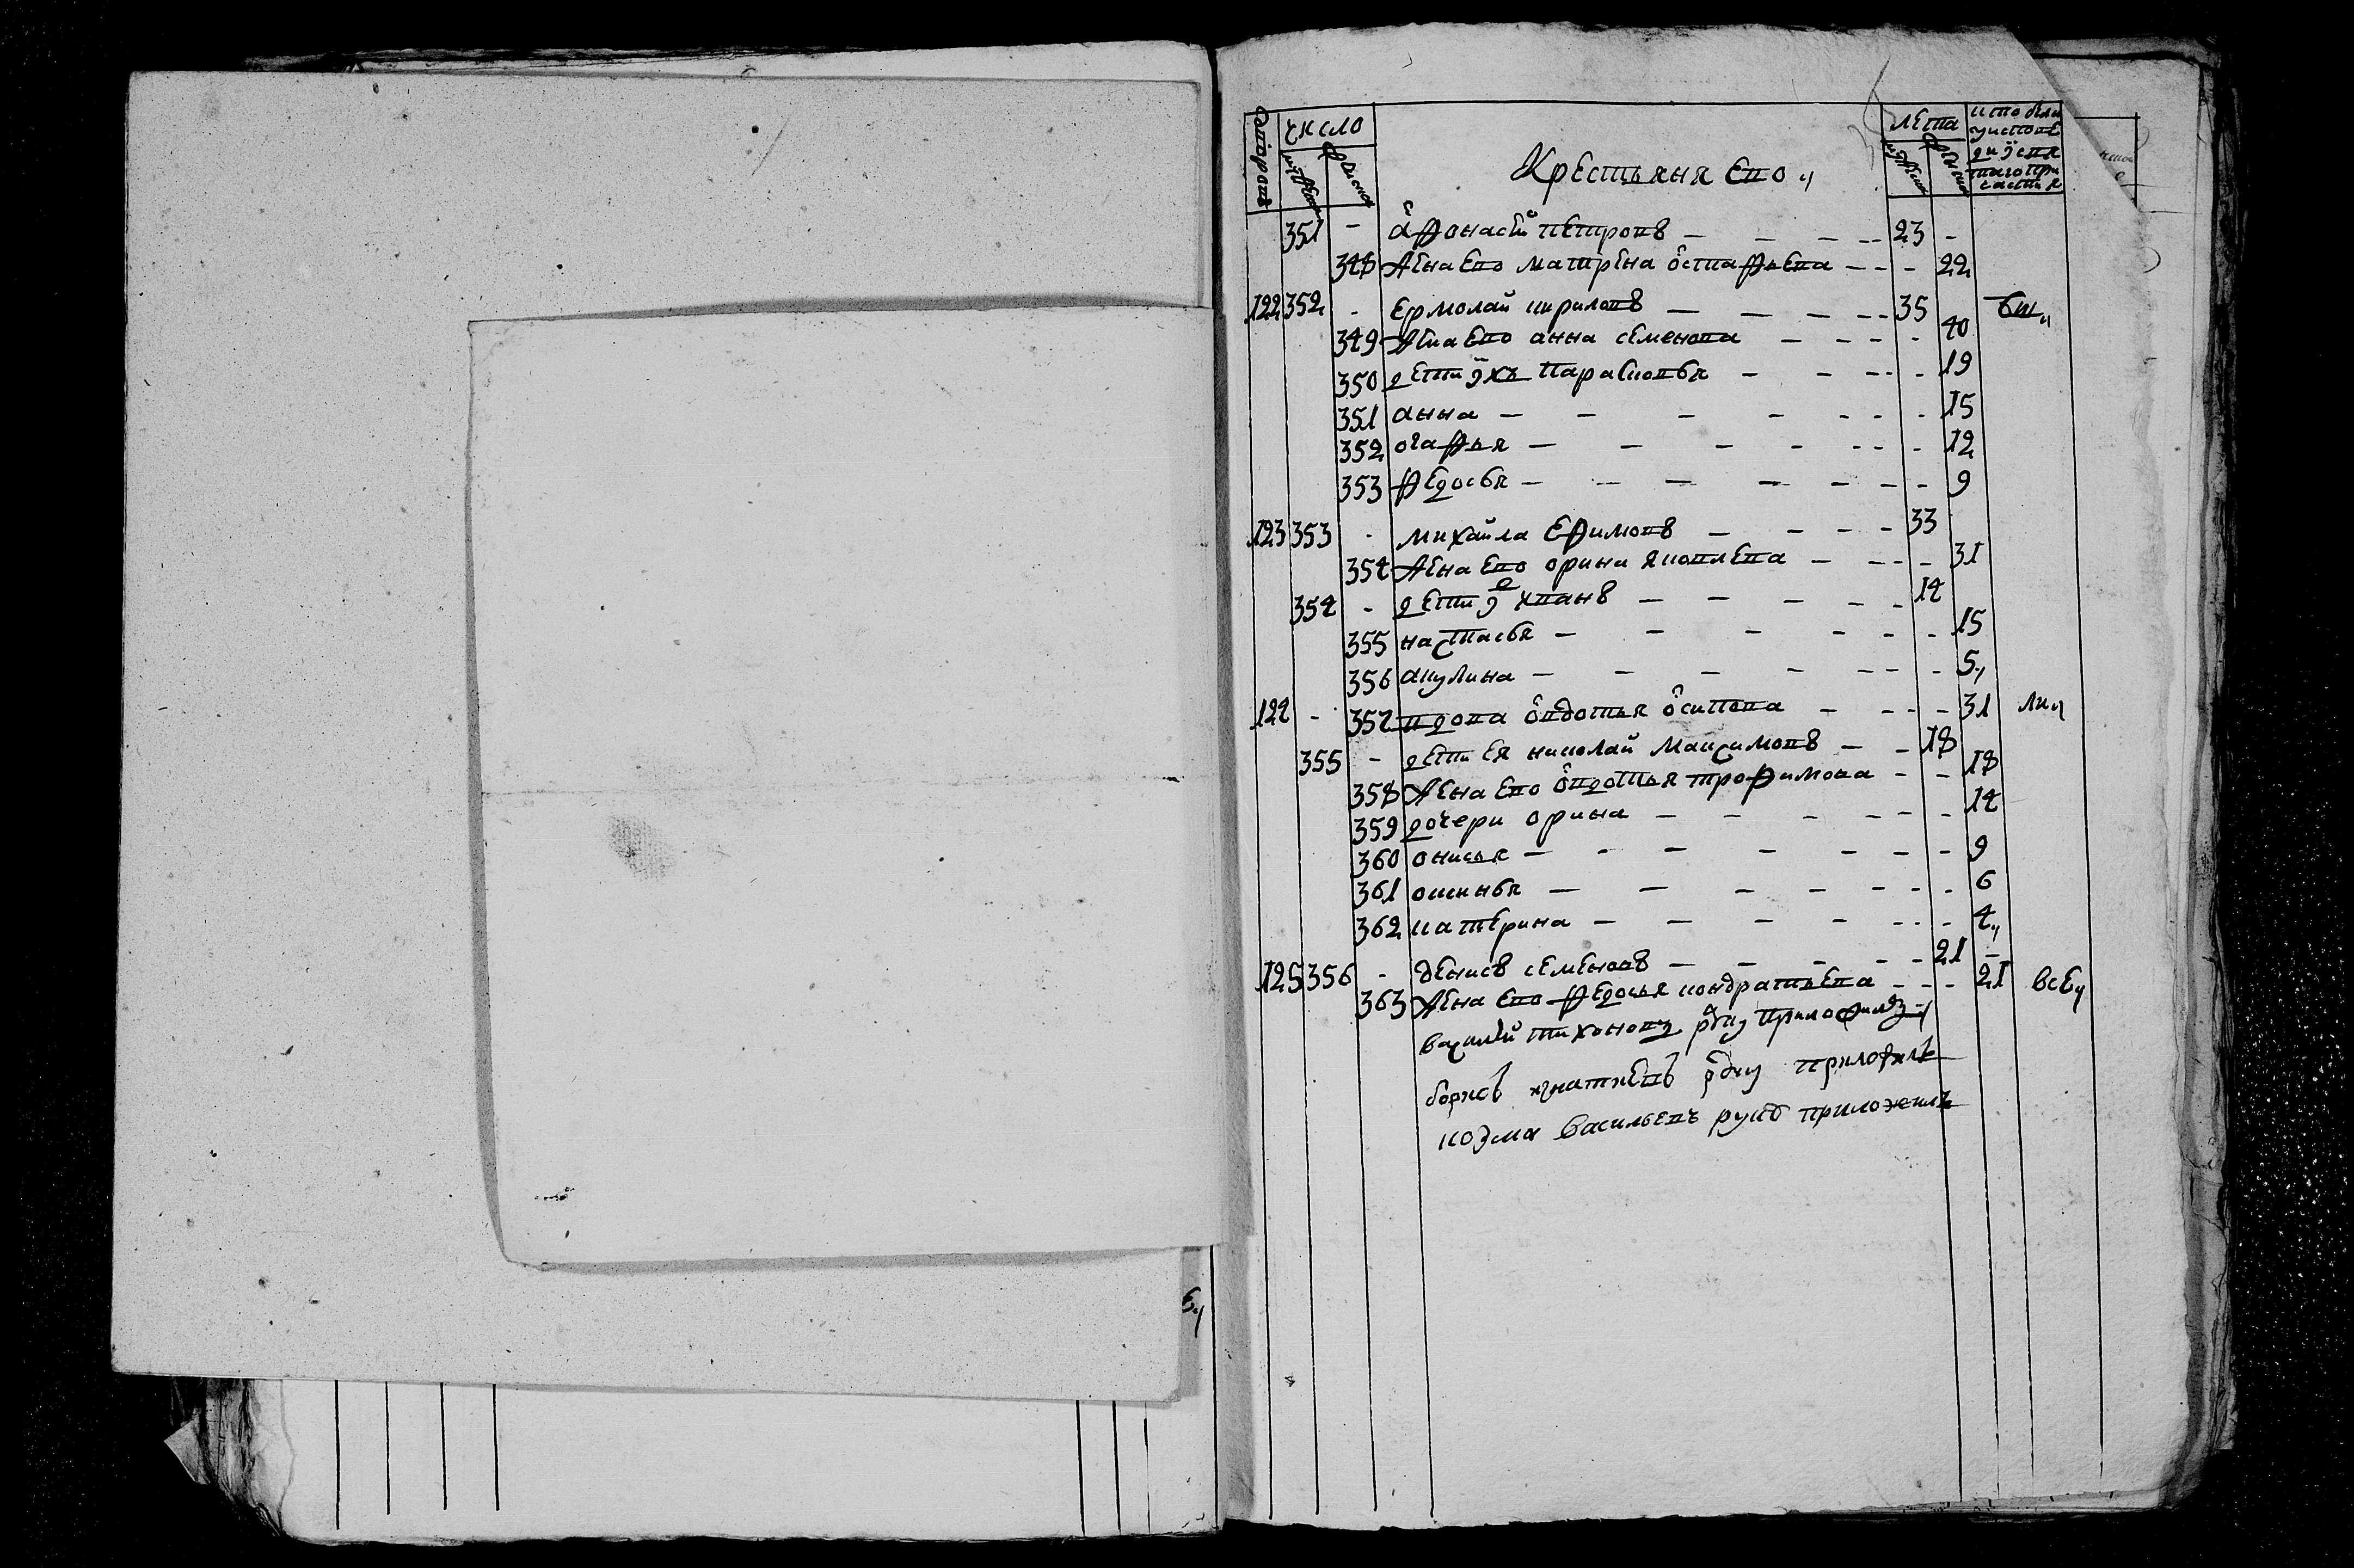 дворовъ число мужеска женска Крестьяня ево лета мужеска женска исповеди
351 - афонасеи петровъ - 23 -
348 Жена ево матрена остафьева - 22
122 352 - Ермолаи кириловъ - 35
349 Жена ево анна семенова - 40
350 дети их парасковья - 19
351 анна - 15
352 огафья - 12
353 федосья - 9
123 353 - михаила Ефимовъ - 33
354 Жена ево орина яковлева - 31
354 - дети иванъ - 14
355 настасья - 15
356 акулина - 5
124 - 357 вдова овдотья осипова - 31
355 - дети ея николаи Максимовъ - 18
358 Жена ево овдотья трофимова - 18
359 дочери орина - 14
360 онисья - 9
361 оксинья - 6
362 катерина - 4
125 356 - денисъ семеновъ - 21 -
363 Жена ево федосья кондратьева - 21 все
василеи тихоновъ руку приложилъ
борисъ игнатиевъ руку приложилъ
козма васильевъ руку приложилъ